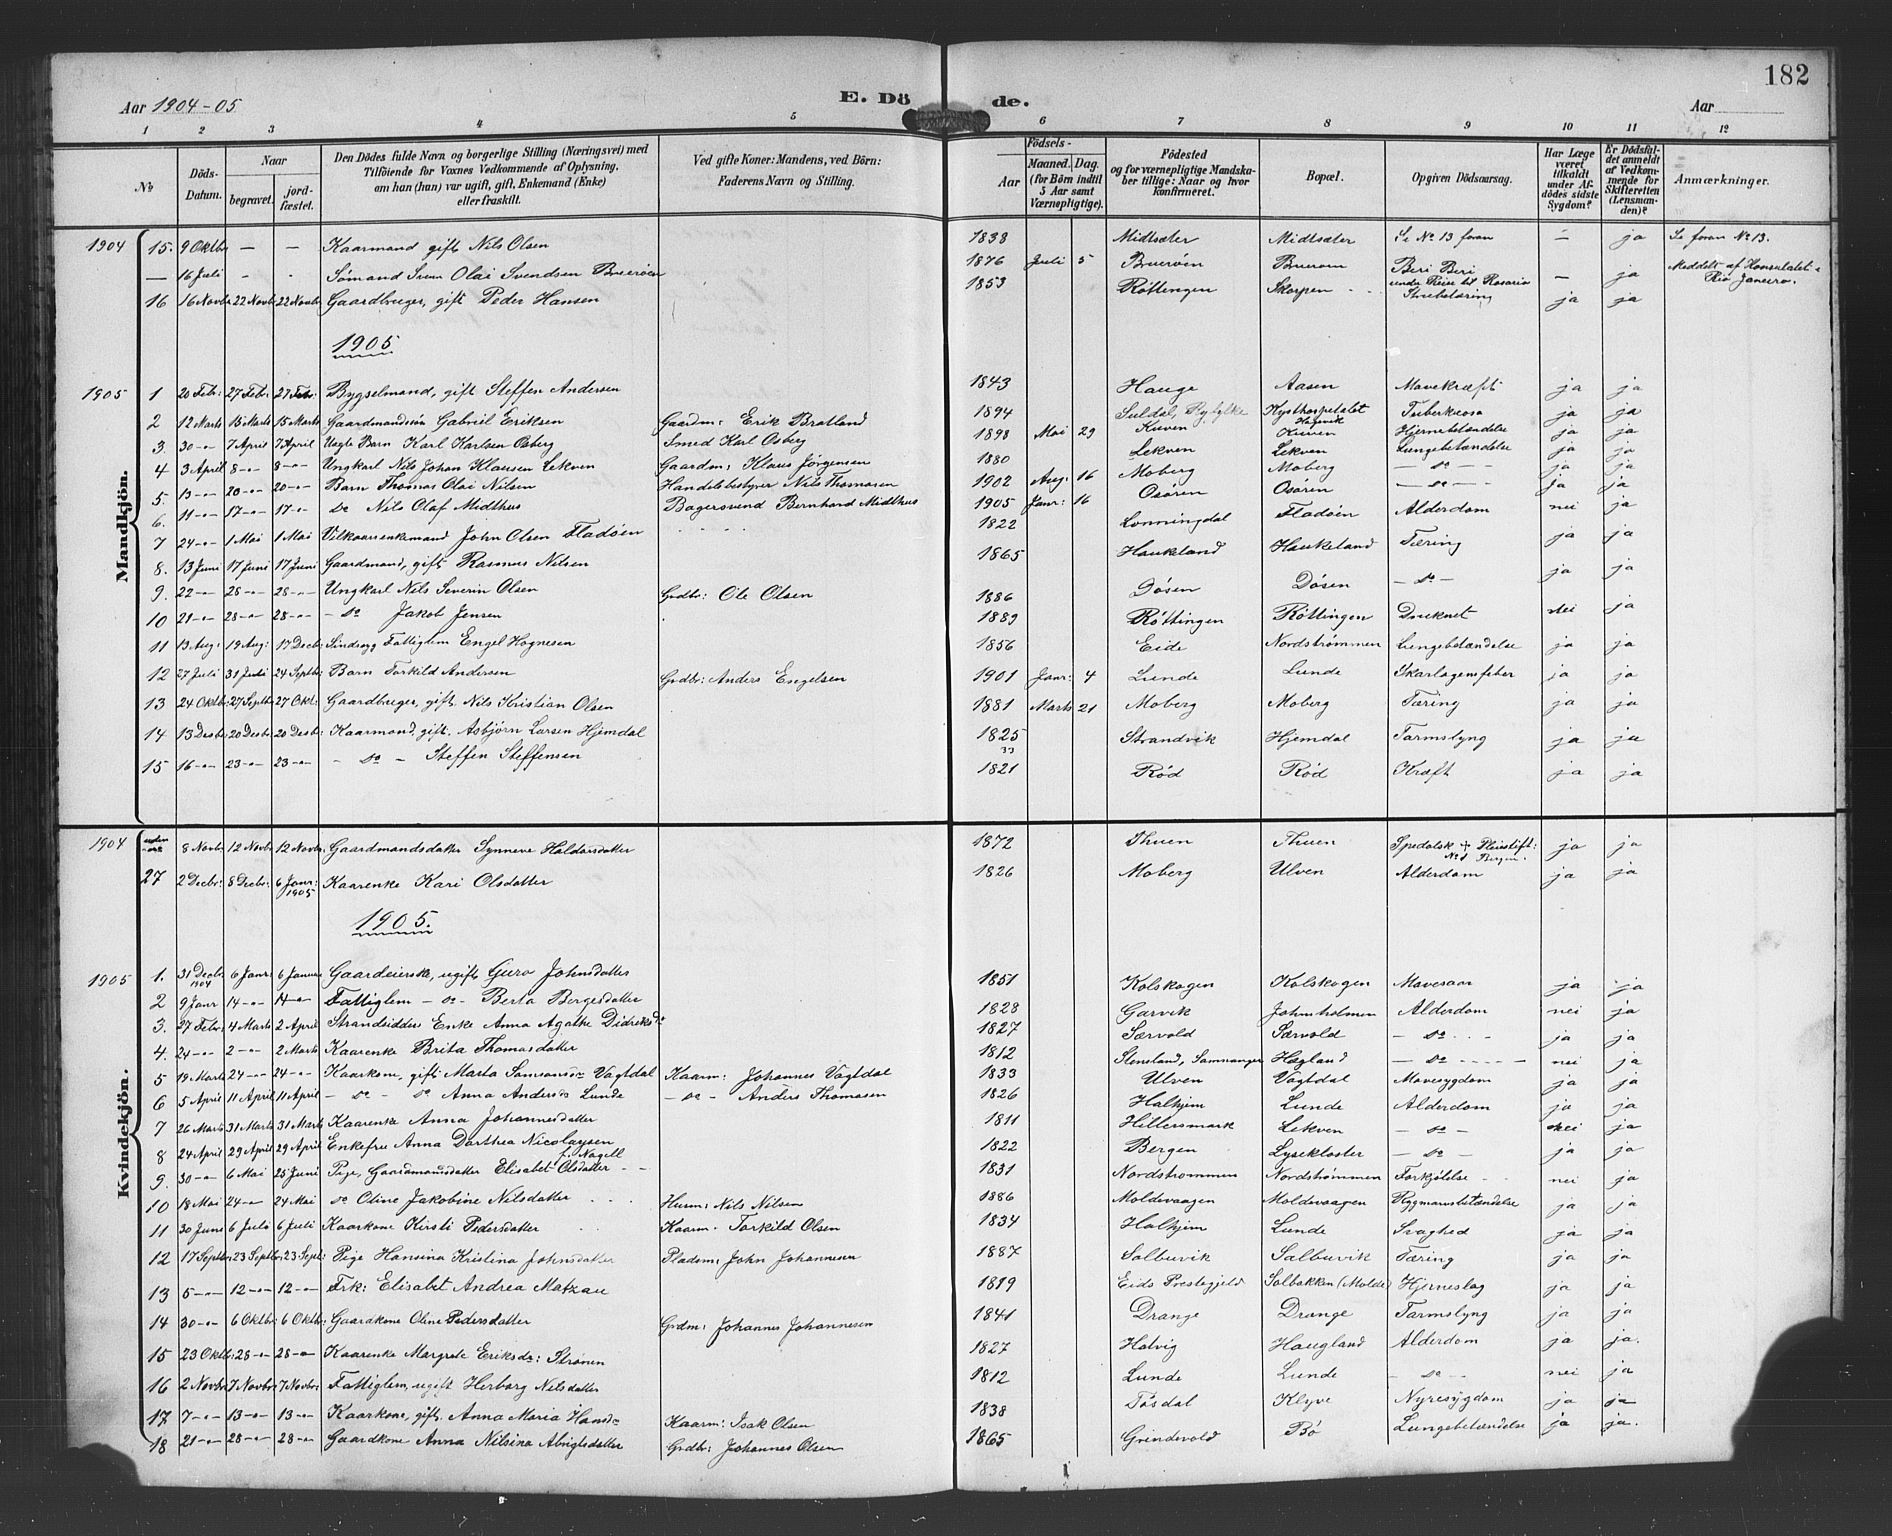 182
Aar 1904-05
E. Dö de.
Aar
1 2 3 4 5 6 7 8 9 10 11 12
No
Döds-Datum.
Naar
begravet.
jord-fæstet.
Den Dödes fulde Navn og borgerlige Stilling (Næringsvei) med
Tilföiende for Voxnes Vedkommende af Oplysning,
om han (hun) var ugift, gift, Enkemand (Enke)
eller fraskilt.
Ved gifte Koner: Mandens, ved Börn:
Faderens Navn og Stilling.
Födsels-
Aar
Maaned. Dag.
(for Börn indtil
5 Aar samt
Værnepligtige).
Födested
og for værnepligtige Mandska-
ber tillige: Naar og hvor
konfirmeret.
Bopæl.
Opgiven Dödsaarsag.
Har Læge
været
tilkaldt
under Af-
dödes sidste
Sygdom?
Er Dödsfal-
det anmeldt
af Vedkom-
mende for
Skifteretten
(Lensman-
den)?
Anmærkninger.
Mandkjön.
1904 15. 9 Oktbr — — Kaarmand gift Nils Olsen 1838 Midtsæter Midtsæter Se No 13 foran — ja Se foran No 13.
— 16 Juli - - Sömand Sven Olai Svendsen Bruerøen 1876 Juli 5 Bruerøen Beri Beri under Reise til Rosario — ja Meddelt af Konsulatet Rio Janeiro.
16 16 Novbr 22 Novbr 22 Novbr Gaardbruger, gift Peder Hansen 1853 Röttingen Skorpen Strubetæring ja ja
1905
1905 1 20 Febr: 27 Febr: 27 Febr: Bygselmand, gift Steffen Andersen 1843 Hauge Aasen Mavekræft ja ja
2 12 Marts 15 Marts 15 Marts Gaardmandssön Gabriel Eriksen Gaardm: Erik Bratland 1894 Suldal, Ryfylke Kysthospitalet Hagevik Tuberkulosa ja ja
3. 30 -"- 7 April 7 April Uegte Barn Karl Karlsen Osberg Smed Karl Osberg 1898 Mai 29 Kuven Kuven Hjernebetændelse ja ja
4 3 April 8 -"- 8 -"- Ungkarl Nils Johan Klausen Lekven Gaardm: Klaus Jörgensen 1880 Lekven Lekven Lungebetændelse ja ja
5. 13 -"- 20 -"- 20 -"- Barn Thomas Olai Nilsen Handelsbestyrer Nils Thomasen 1902 Aug: 16 Moberg Moberg — Do — ja ja
6. 11 -"- 17 -"- 17 -"- Do Nils Olaf Midthus Bagersvend Bernhard Midthus 1905 Janr: 16 Osören Osören — Do — ja ja
7 24 -"- 1 Mai 1 Mai Vilkaarsenkemand John Olsen Fladöen 1822 Lonningdal Fladöen Alderdom nei ja
8. 13 Juni 17 Juni 17 Juni Gaardmand, gift Rasmus Nilsen 1865 Haukeland Haukeland Tæring ja ja
9. 22 -"- 28 -"- 28 -"- Ungkarl Nils Severin Olsen Grdbr: Ole Olsen 1886 Dösen Dösen — Do — ja ja
10 21 -"- 28 -"- 28 -"- — Do Jakob Jensen 1889 Röttingen Röttingen Druknet nei ja
11 13 Aug: 19 Aug: 17 Decbr: Sindssyg Fattiglem Engel Hognesen 1856 Eide Nordstrømmen Lungebetændelse ja ja
12 27 Juli 31 Juli 24 Septbr: Barn Torkild Andersen Grdbr: Anders Engelsen 1901 Janr: 4 Lunde Lunde Skarlagensfeber ja ja
13 24 Oktbr: 27 Septbr: 27 Okt: Gaardbruger, gift Nils Kristian Olsen 1881 Marts 21 Moberg Moberg Tæring ja ja
14 13 Decbr: 20 Decbr: 20 Decbr: Kaarmand, gift. Asbjörn Larsen Hjemdal 1825 Strandvik Hjemdal Tarmslyng ja ja
15 16 -"- 23 -"- 23 -"- — Do — Steffen Steffensen 1821 Röd Röd Kræft ja ja
Kvindekjön.
1904 8 Novbr 12 Novbr 12 Novbr: Gaardmandsdatter Synneve Haldorsdatter 1872 Thuen Thuen Spedalsk Pleiestift: No 1 Bergen. ja ja
27 2 Decbr: 8 Decbr: 6 Janr: 1905 Kaarenke Kari Olsdatter 1826 Moberg Ulven Alderdom ja ja
1905.
1905 1. 31 Decbr. 1904 6 Janr: 6 Januar Gaardeierske, ugift Guro Johnsdatter 1851 Kolskogen Kolskogen Mavesaar ja ja
2 9 Janr 14 -"- 14 -"- Fattiglem — Do — Berta Bergesdatter 1828 Garvik Johnholmen Alderdom nei ja
3. 27 Febr 4 Marts 2 April Strandsidders Enke Anna Agathe Didriksdr 1827 Særvold Særvold — Do ja ja
4. 24 -"- 2 -"- 2 Marts Kaarenke Brita Thomasdatter 1812 Stensland, Samnanger Hægland — Do nei ja
5 19 Marts 24 -"- 24 -"- Kaarkone, gift Marta Samsonsdr Vagtdal Kaarm: Johannes Vagtdal 1833 Ulven Vagtdal Mavesygdom ja ja
6 5 April 11 April 11 April — Do — Do Anna Andersdr Lunde — Do — Anders Thomasen 1826 Halhjem Lunde Alderdom ja ja
7 26 Marts 31 Marts 31 Marts Kaarenke Anna Johannesdatter 1811 Hillersmark Lekven — Do — nei ja
8 24 April 29 April 29 April Enkefru Anna Dorthea Nicolaysen f. Nagell 1822 Bergen Lysekloster — Do — ja ja
9. 30 -"- 6 Mai 25 Juni Pige, Gaardmandsdatter Elisabet Olsdatter 1831 Nordstrommen Nordstrømmen Forkjølelse nei ja
10 18 Mai 24 -"- 24 Mai Do Oline Jakobine Nilsdatter Husm: Nils Nilsen 1886 Moldevaagen Moldevaagen Rygmarvsbetændelse ja ja
11 30 Juni 6 Julo 6 Juli Kaarkone Kirsti Pedersdatter Kaarm. Torkild Olsen 1834 Halhjem Lunde Svaghed ja ja
12 17 Septbr 23 Septbr: 23 Sept: Pige Hansina Kristina Johnsdatter Pladsm: John Johannesen 1887 Salbuvik Salbuvik Tæring ja ja
13 5 -"- 12 -"- 12 -"- Frk: Elisabet Andrea Matzau 1819 Eids Prestegjeld Solbakken (Molde) Hjerneslag ja ja
14 30 -"- 6 Oktbr: 6 Oktbr: Gaardkone Oline Pedersdatter Grdm: Johannes Johannesen 1841 Drange Drange Tarmslyng ja ja
15 23 Oktb: 28 -"- 28 -"- Kaarenke Margrete Eriksdr: Strönen 1827 Hatvig Haugland Alderdom ja ja.
16 2 Novbr 7 Novbr: 7 Novbr: Fattiglem, ugift Herborg Nilsdatter 1812 Lunde Lunde — Do — nei ja
17 7 -"- 13 -"- 13 -"- Kaarkone, gift. Anna Maria Hansdr Kaarm: Isak Olsen 1838 Tösdal Klyve Nyresygdom ja ja
18 21 -"- 28 -"- 28 -"- Gaardkone Anna Nilsina Abrigtsdatter Grdbr: Johannes Olsen 1865 Grindevold Bö Lungebetændelse ja ja.